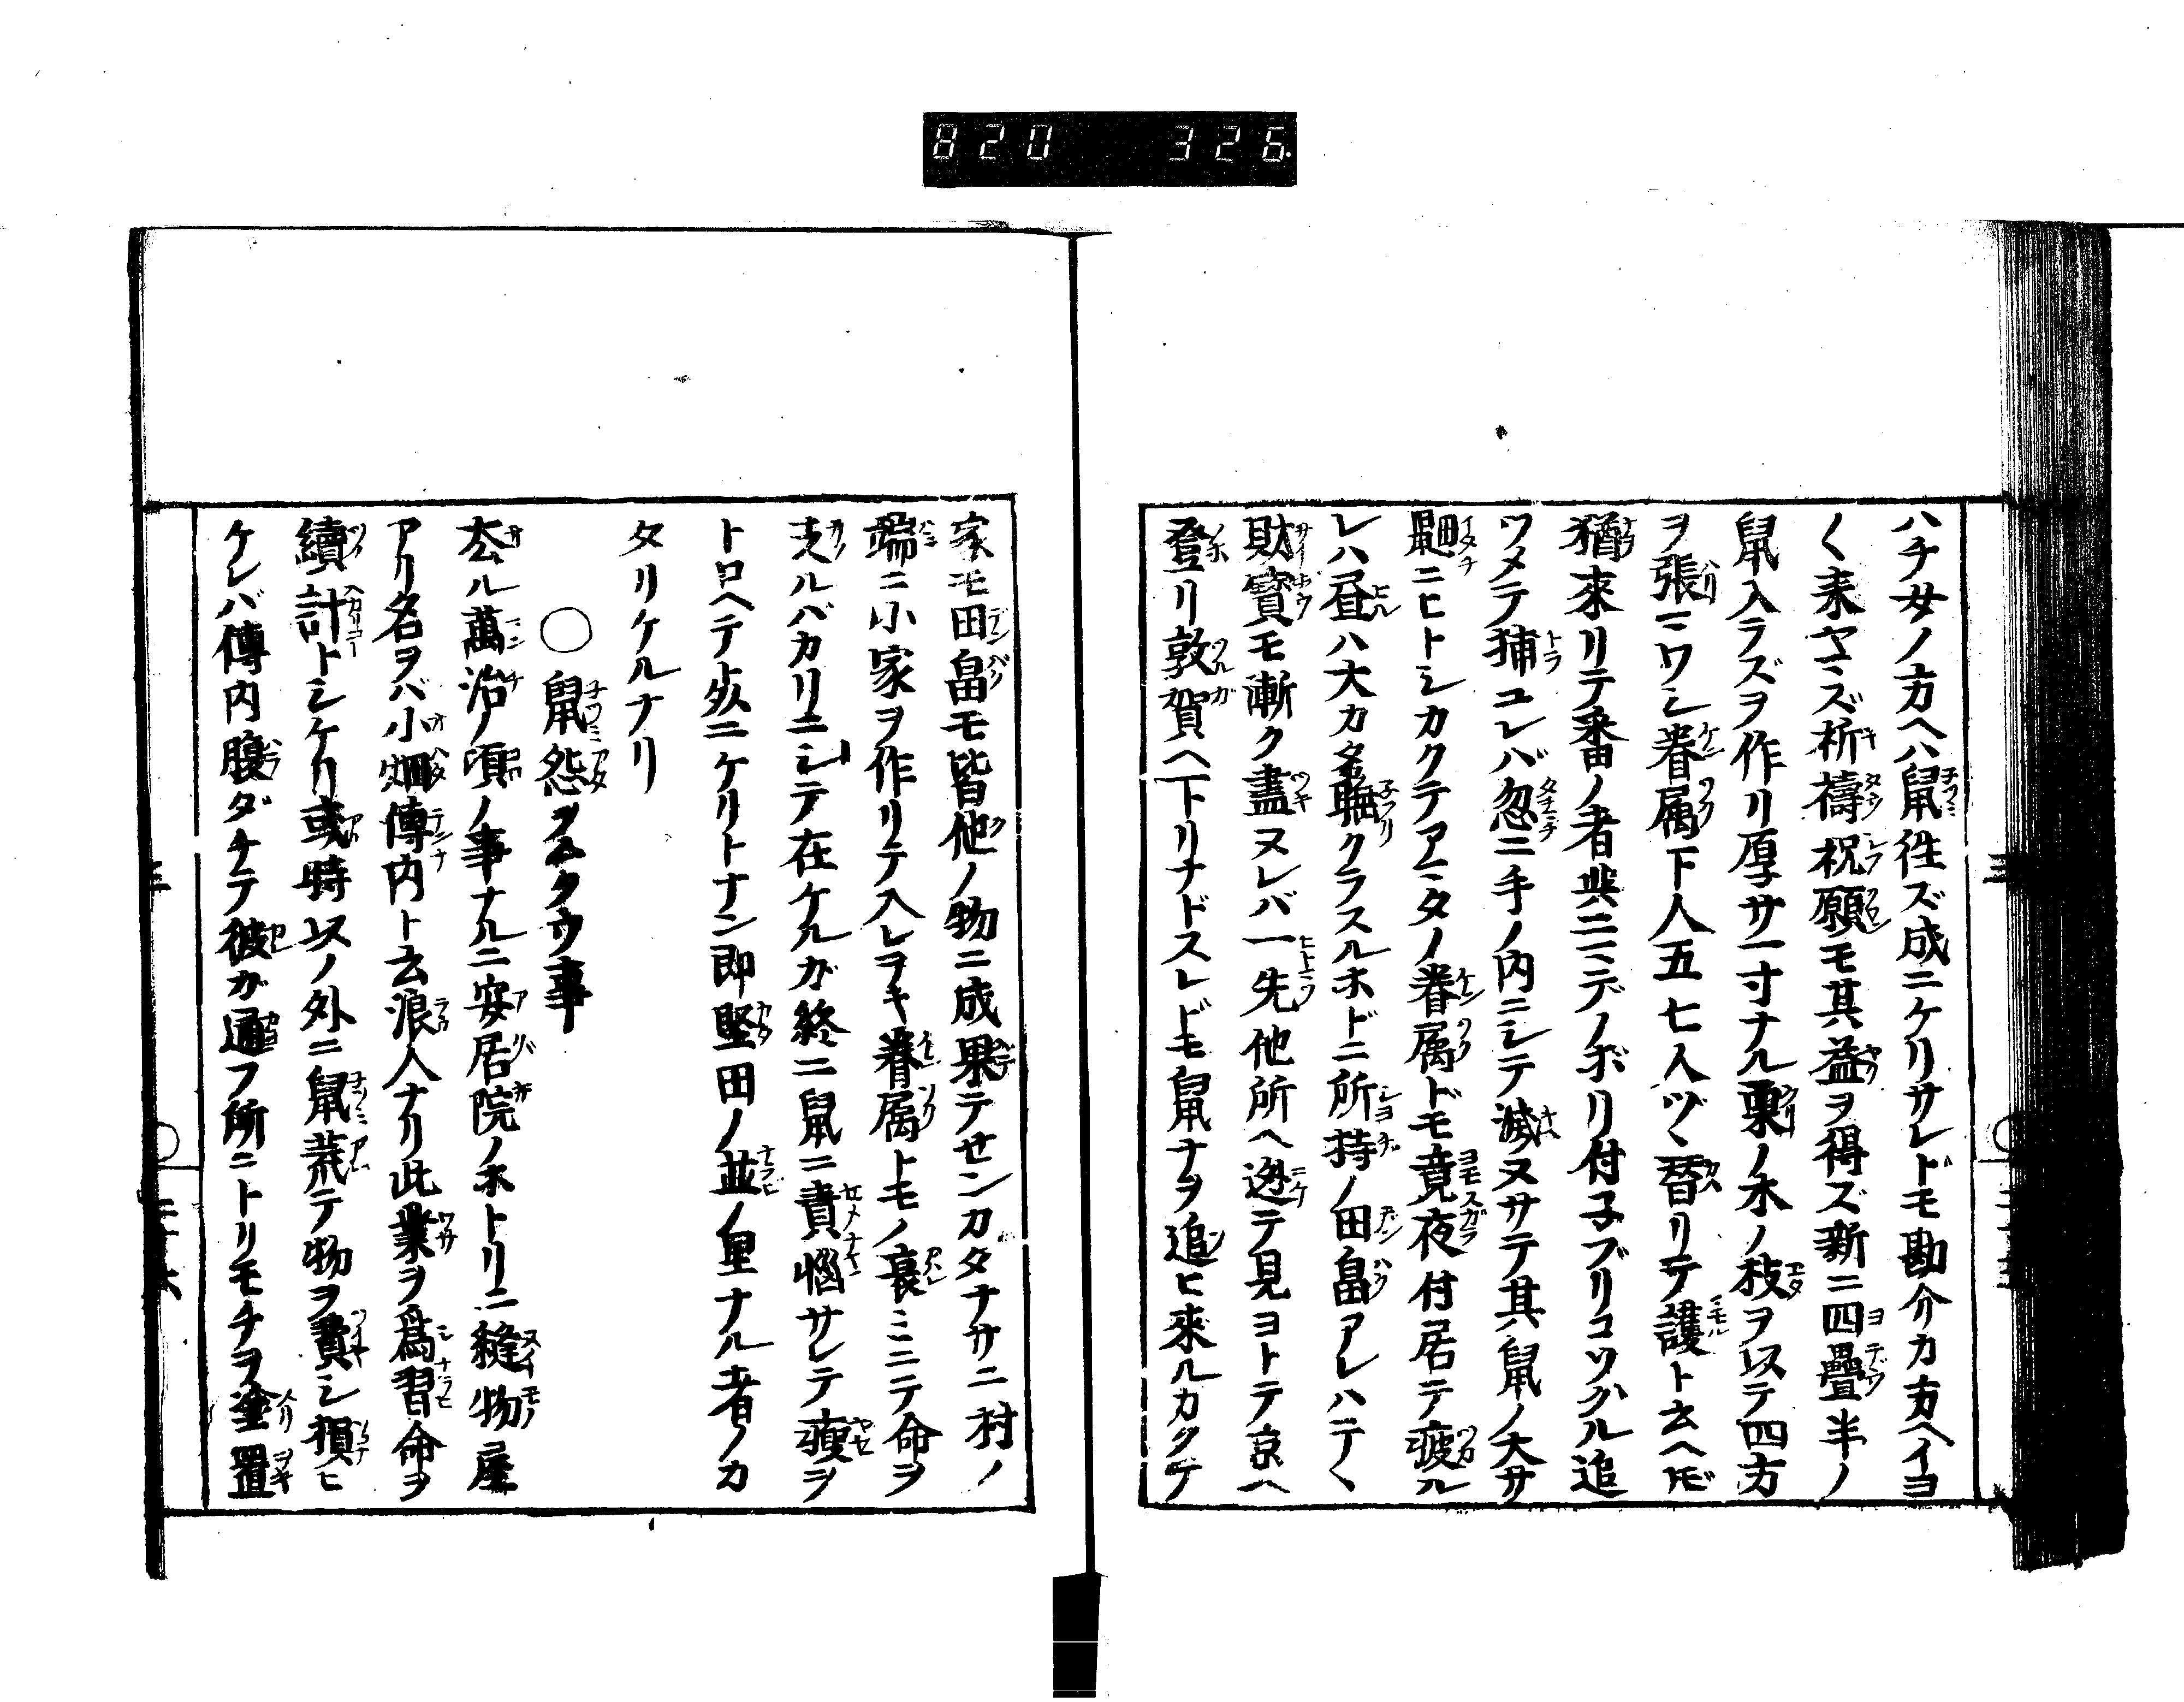 820 326
ハチ女ノ方ヘハ鼠往ズ成ニケリサレドモ勘介カ方ヘイヨ
〱来ヤマズ祈禱祝願モ其益ヲ得ズ新ニ四疊半ノ
鼠入ラズヲ作リ厚サ一寸ナル栗ノ木ノ板ヲ以テ四方
ヲ張マワシ眷属下人五七人ヅヽ替リテ護ト云ヘドモ
猶來リテ番ノ者共ニマデノボリ付子ブリコソグル追
ツメテ捕ユレバ忽ニ手ノ内ニシテ滅ヌサテ其鼠ノ大サ
鼬ニヒトシカクテアマタノ眷属ドモ竟夜付居テ疲ル
レハ昼ハ大カタ睡クラスルホドニ所持ノ田畠アレハテヽ
財寳モ漸ク盡ヌレバ一先他所ヘ迯テ見ヨトテ京ヘ
登リ敦賀ヘ下リナドスレドモ鼠ナヲ追ヒ來ルカクテ
家モ田畠モ皆他ノ物ニ成果テセンカタナサニ村ノ
端ニ小家ヲ作リテ入レヲキ眷属トモノ哀ミニテ命ヲ
支ルバカリニシテ在ケルガ終ニ鼠ニ責惱サレテ瘦ヲ
トロヘテ失ニケリトナン即堅田ノ並ノ里ナル者ノカ
タリケルナリ
○鼠怨ヲ事
厺ル萬治ノ頃ノ事ナルニ安居院ノホトリニ縫物屋
アリ名ヲバ小畑傳内ト云浪人ナリ此業ヲ爲習命ヲ
續計トシケリ或時以ノ外ニ鼠荒テ物ヲ費シ損ヒ
ケレバ傳内腹ダチテ彼ガ通フ所ニトリモチヲ塗置